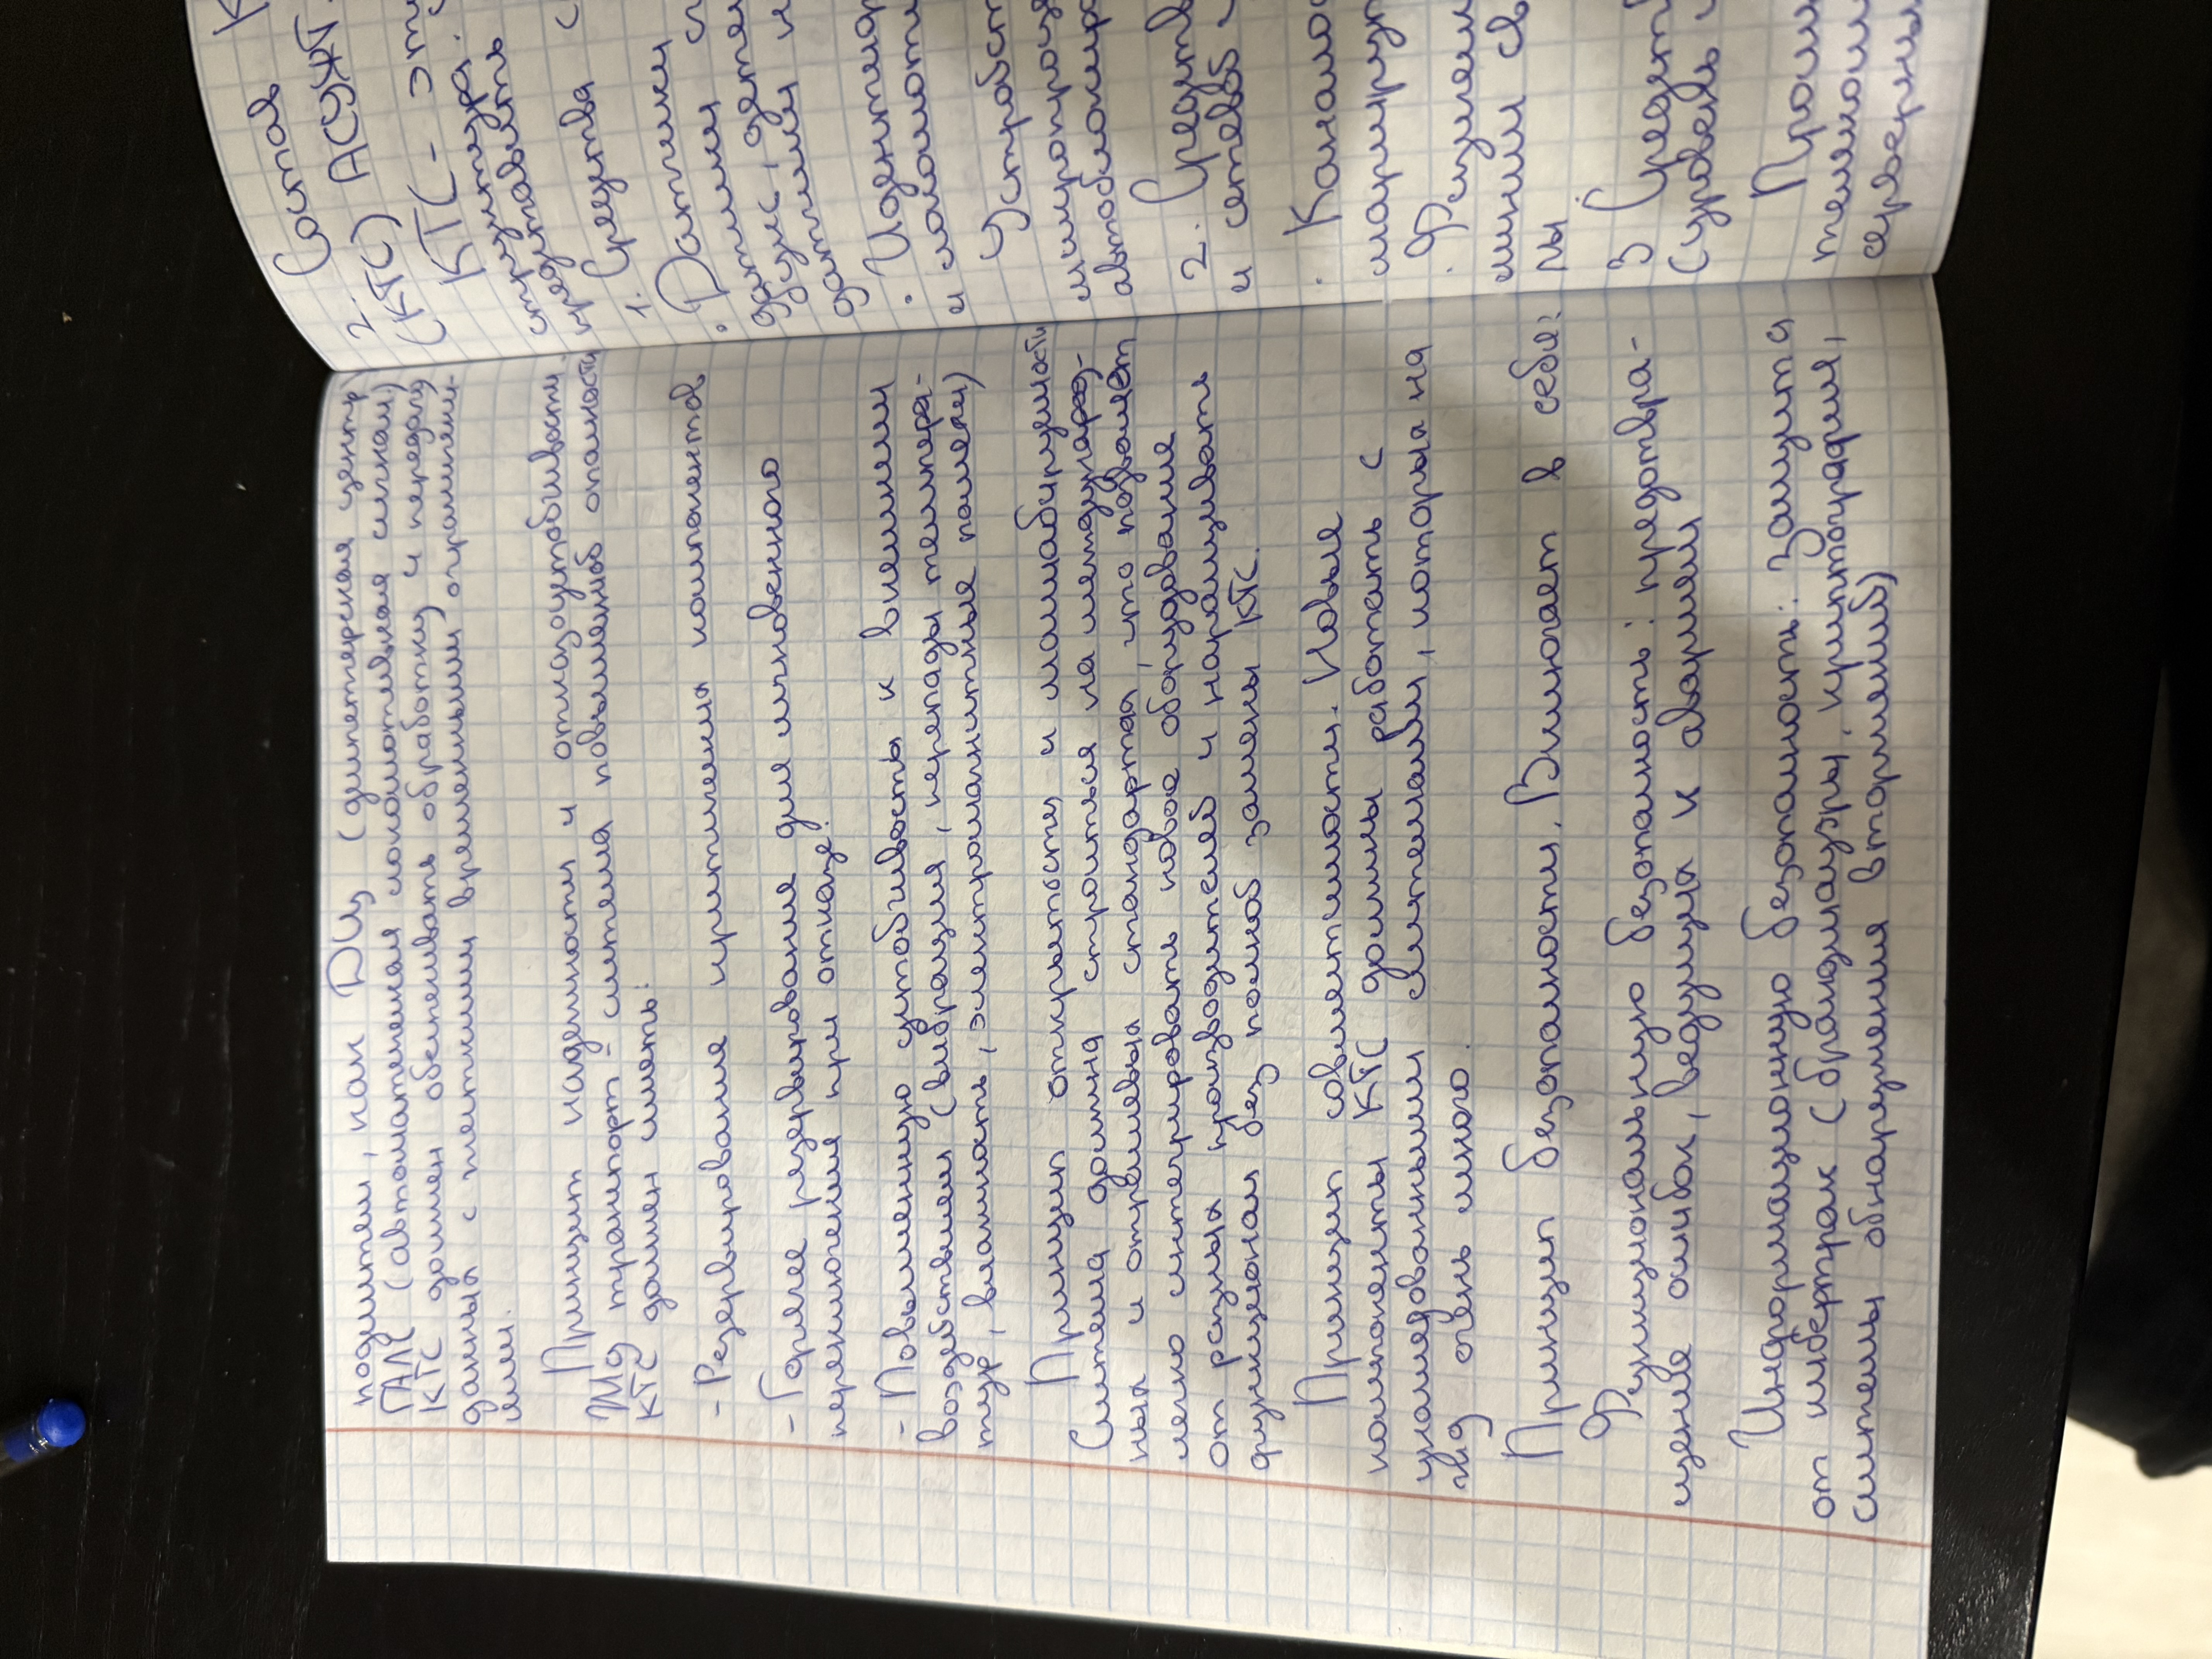 подсистем, как ДЦ (диспетчерская центр)
ГАЛС (автоматическая локомотивная сигнал)
КТС должен обеспечивать обработку и передачу
данных с жесткими временными ограничени-
ями.
Принцип надежности и отказоустойчивости
ЖД транспорт - система повышенной опасности
КТС должен иметь:
- Резервирование критических компонентов
- Горячее резервирование для мгновенного
переключения при отказе.
- Повышенную устойчивость к внешним
воздействиям (вибрация, перепады темпера-
тур, влажность, электромагнитные помехи)
Принцип открытости и масштабируемости
Система должна строиться на международ-
ных и отраслевых стандартах, что позволяет
легко интегрировать новое оборудование
от разных производителей и наращивать
функционал без полной замены КТС.
Принцип совместимости. Новые
компоненты КТС должны работать с
унаследованными системами, которых на
жд очень много.
Принцип безопасности, Включает в себя:
Функциональную безопасность: предотвра-
щение ошибок, ведущих к авариям
Информационную безопасность: защита
от кибератак (брандмауэры, криптография,
системы обнаружения вторжений)
2. Состав К
(КТС) АСУЖТ.
КТС - это
КТС
структура.
представить
средства с
1. Средства
• Датчики
датчики
датчики и
• Идентифик
и локомоти
Устройст
микропроце
автоблокир
2. Средств
и сетевой
• Канало
маршрути
линии св
3 Средст
(уровень
Пром
телеком
серверны